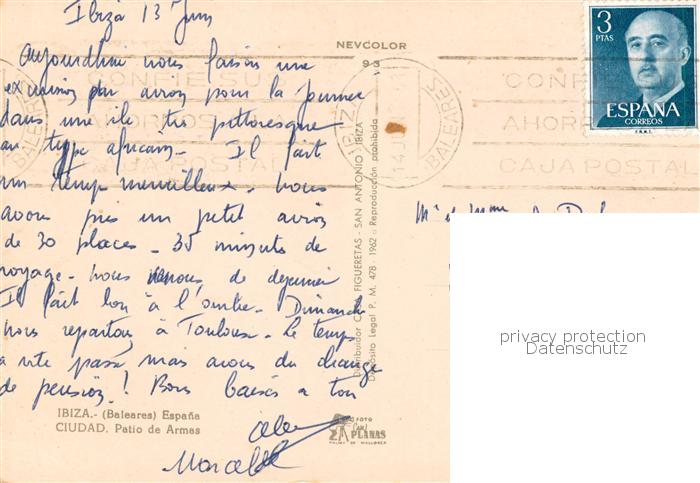 Ibiza 13 Juin
Aujourd'hui nous faisons une
excursion par avion pour la journée
dans une île très pittoresque
au type africain. Il fait
un temps merveilleux. Nous
avons pris un petit avion
de 30 places - 35 minutes de
voyage - nous venons de déjeuner
Il fait bon à l'ombre - Dimanche
nous repartons à Toulouse - le temps
a vite passé mais avons du changer
de pension! Bons baisers à tous
Marcelle
NEVCOLOR
93
3
PTAS
ESPAÑA
CORREOS
F.N.M.T.
CONFIE SUS
AHORROS
CAJA POSTAL
BALEARES
IBIZA
BALEARES
CONF
AHORR
CAJA POSTAL
Distribuidor CASA FIGUERETAS - SAN ANTONIO, IBIZA
Depósito Legal P. M. 478 - 1962 - Reproducción prohibida
Mr et Mme
privacy protection
Datenschutz
IBIZA.- (Baleares) España
CIUDAD. Patio de Armas
FOTO
PLANAS
PALMA DE MALLORCA